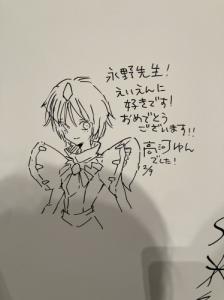 永野先生!
えいえんに
好きです!
おめでとう
ございます!!
高河ゆん
でした!
2/9